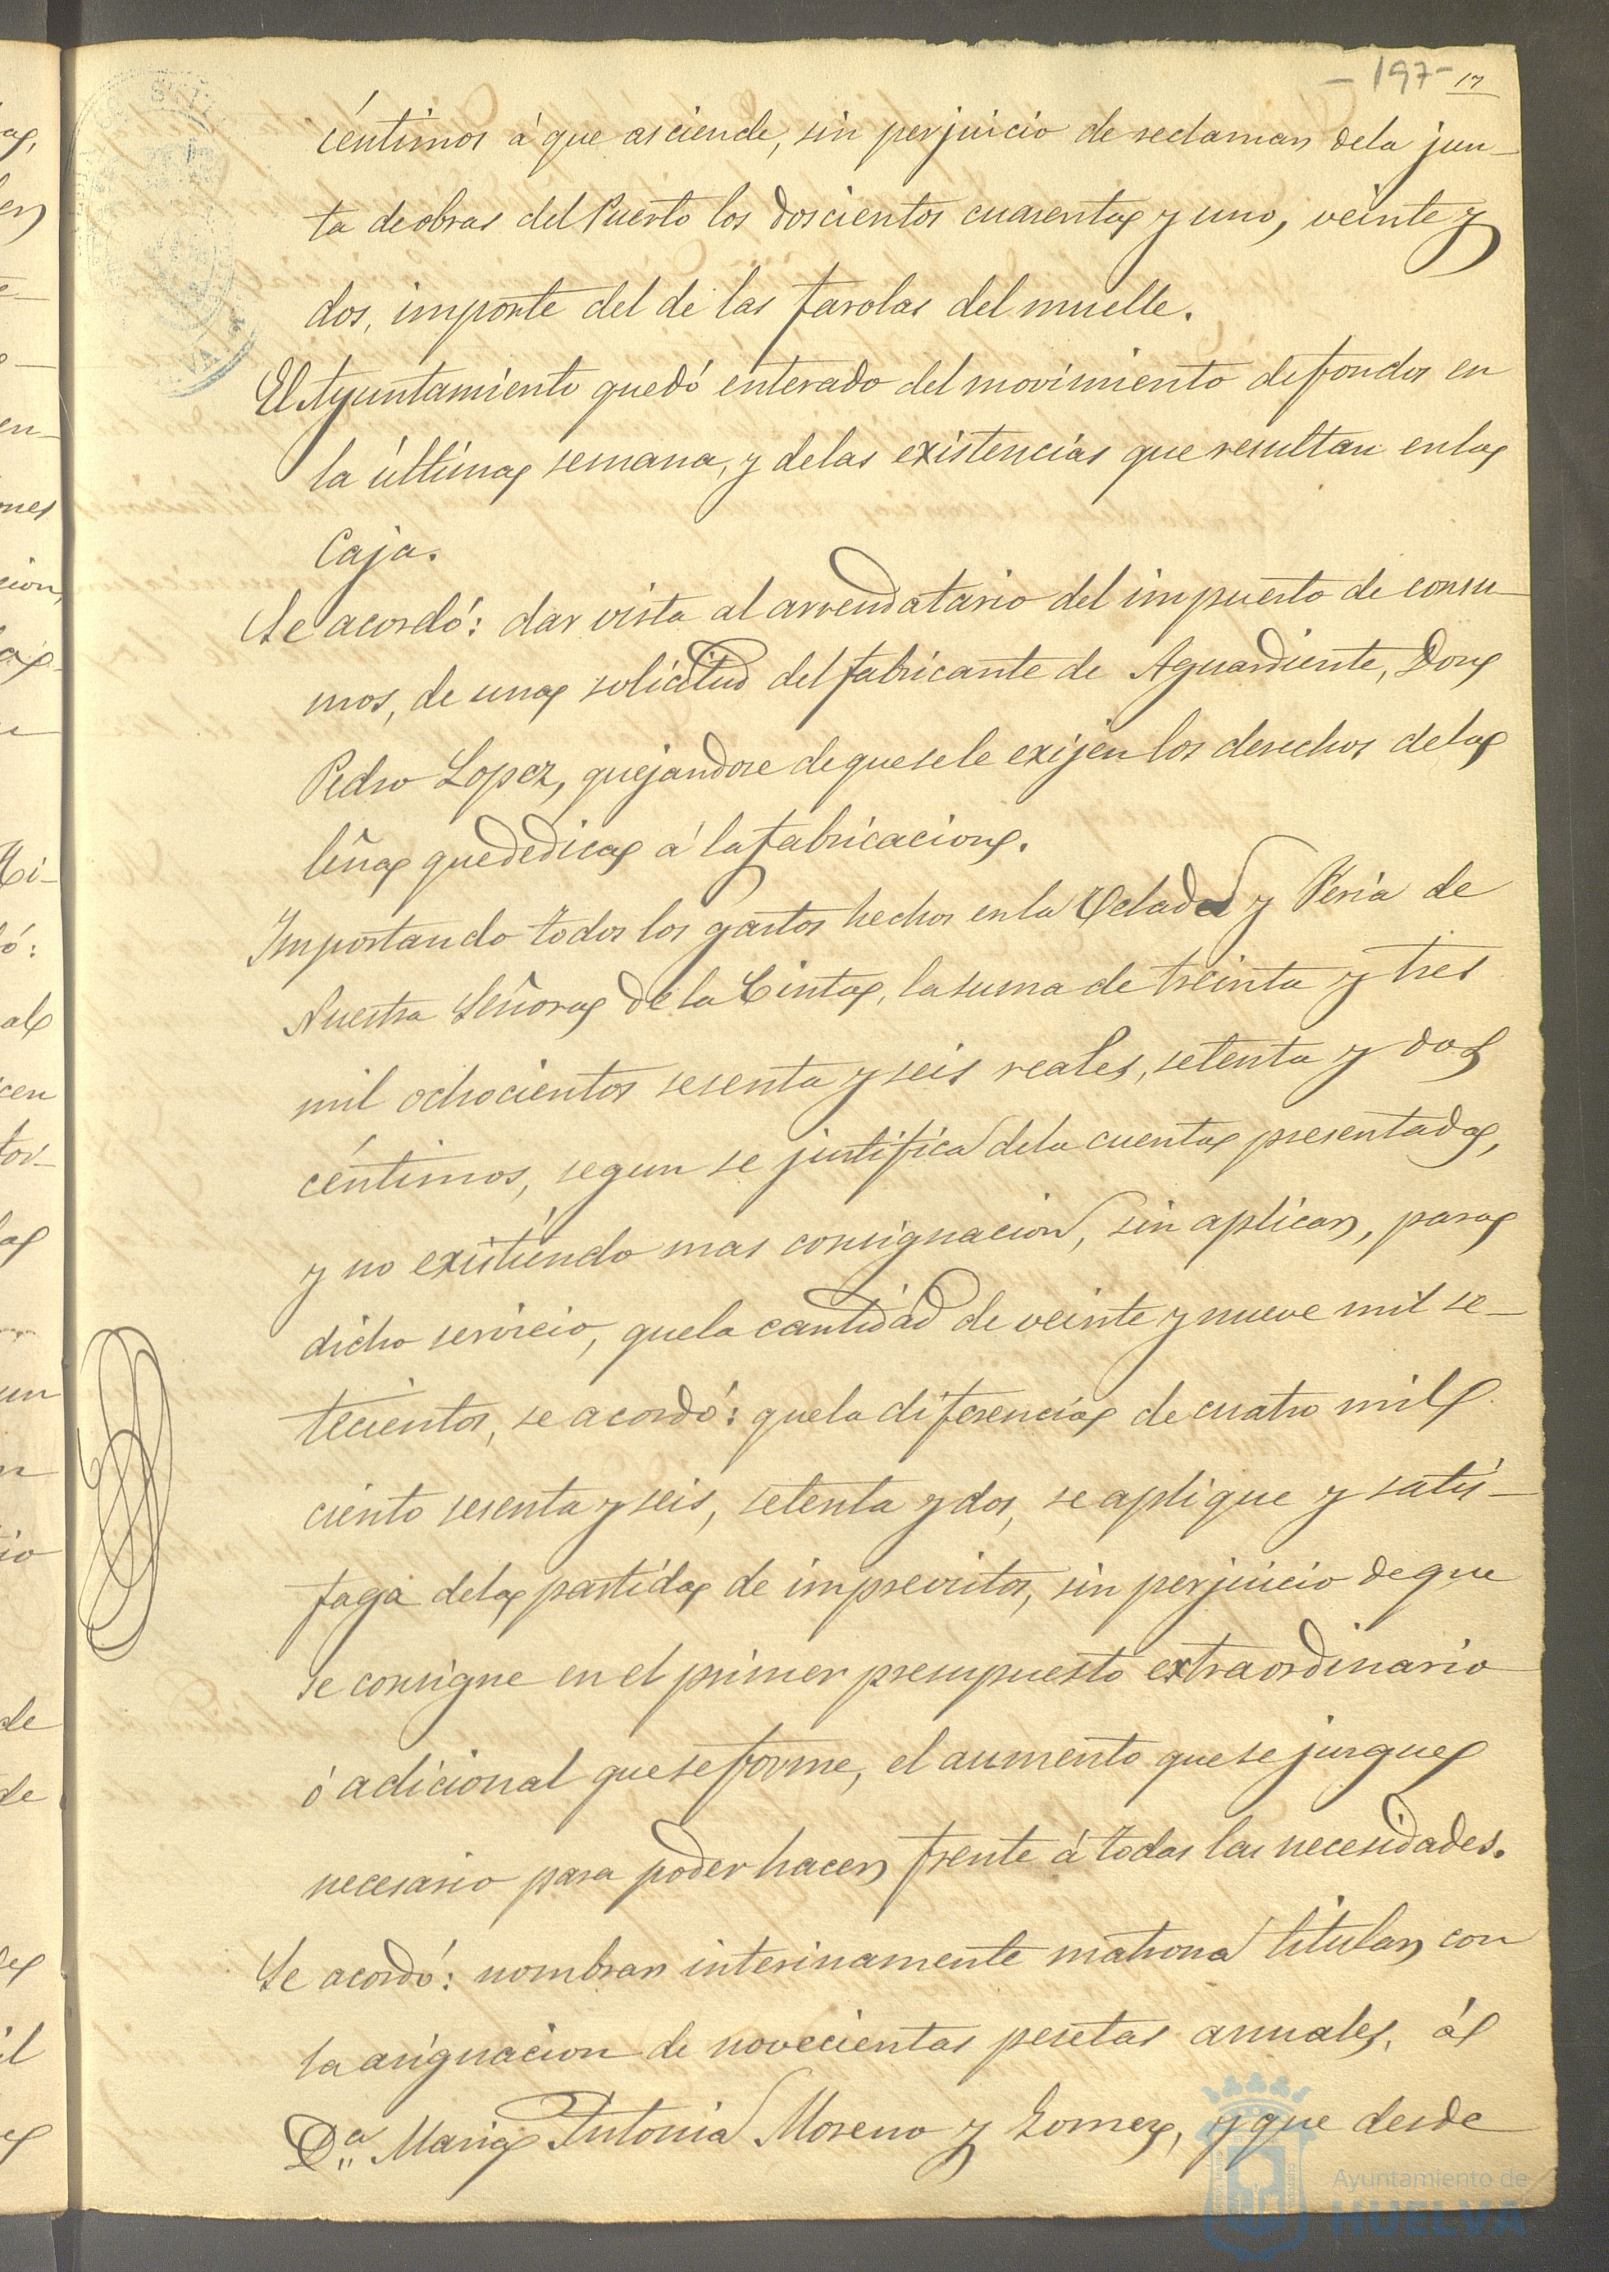 -197- 17
céntimos á que asciende, sin perjuicio de reclamar dela jun-
ta de obras del Puerto los doscientos cuarenta y uno, veinte y
dos, importe del de las farolas del muelle.
El Ayuntamiento quedó enterado del movimiento de fondos en
la última semana, y delas existencias que resultan en la
Caja.
Se acordó: dar vista al arrendatario del impuesto de consu-
mos, de una solicitud del fabricante de Aguardiente, Don
Pedro Lopez, quejandose de que se le exijen los derechos dela
leña que dedica á la fabricacion.
Importando todos los gastos hechos en la Velada y Feria de
Nuestra Señora de la Cinta, la suma de treinta y tres
mil ochocientos sesenta y seis reales, setenta y dos
céntimos, segun se justifica dela cuenta presentada,
y no existiendo mas consignacion, sin aplicar, para
dicho servicio, que la cantidad de veinte y nueve mil se-
tecientos, se acordó: que la diferencia de cuatro mil
ciento sesenta y seis, setenta y dos, se aplique y satis-
faga dela partida de imprevistos, sin perjuicio de que
se consigne en el primer presupuesto extraordinario
ó adicional que se forme, el aumento que se jusgue
necesario para poder hacer frente á todas las necesidades.
Se acordó: nombrar interinamente matrona titular con
la asignacion de novecientas pesetas anuales, á
Dª Maria Antonia Moreno y Gomez, y que desde
Ayuntamiento de
HUELVA